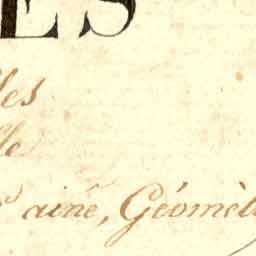 ES
les
lle
ainé, Géomèt